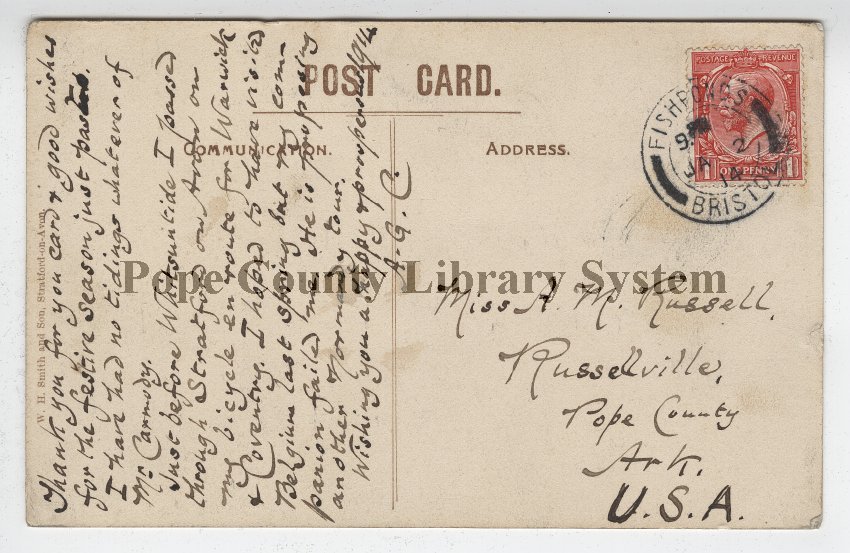 POST CARD.
COMMUNICATION.
ADDRESS.
POSTAGE REVENUE
ONE PENNY
FISHPONDS
JA 2
14
BRISTOL
Thank you for you card & good wishes
for the festive season just past.
I have had no tidings whatever of
Mr Carmody.
Just before Whitsuntide I passed
through Stratford on Avon on
my bicycle en route for Warwick
& Coventry. I hoped to have visited
Belgium last spring but my com-
panion failed me. He is proposing
another Normandy tour.
Wishing you a happy & prosperous 1914
A. G. C.
Miss A. M. Russell,
Russellville,
Pope County
Ark.
U.S.A.
W. H. Smith and Son, Stratford-on-Avon.
Pope County Library System